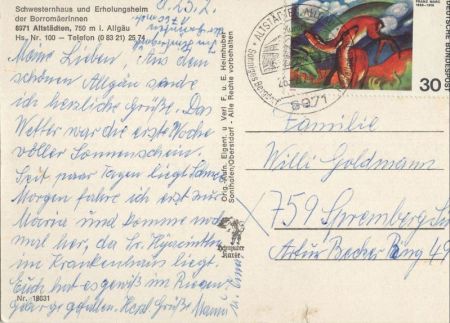 Schwesternhaus und Erholungsheim
der Borromäerinnen
8971 Altstädten, 750 m i. Allgäu
Hs. Nr. 100 - Telefon (0 83 21) 25 74
d. 23.2.
Meine Lieben, Aus dem
schönen Allgäu sende
ich herzliche Grüße. Das
Wetter war die erste Woche
voller Sonnenschein.
Seit paar Tagen liegt Schnee
Morgen fahre ich erst zu
Maria und komme noch
mal her, da Sr. Hyacintha
im Krankenhaus liegt.
Euch hat es gewiß im Riesen-
gebirge gefallen. Herzl. Grüße
Nr. 18631
Orig. Natn. Eigent. u Verl F. u. E. Heimhuber
Sonthofen/Oberstdorf - Alle Rechte vorbehalten
Heimhuber
Karte
ALTSTÄDTEN, ALLG
8971
FRANZ MARC
DEUTSCHE BUNDESPOST
30
Familie
Willi Goldmann
759 Spremberg
Artur Becker Ring 49